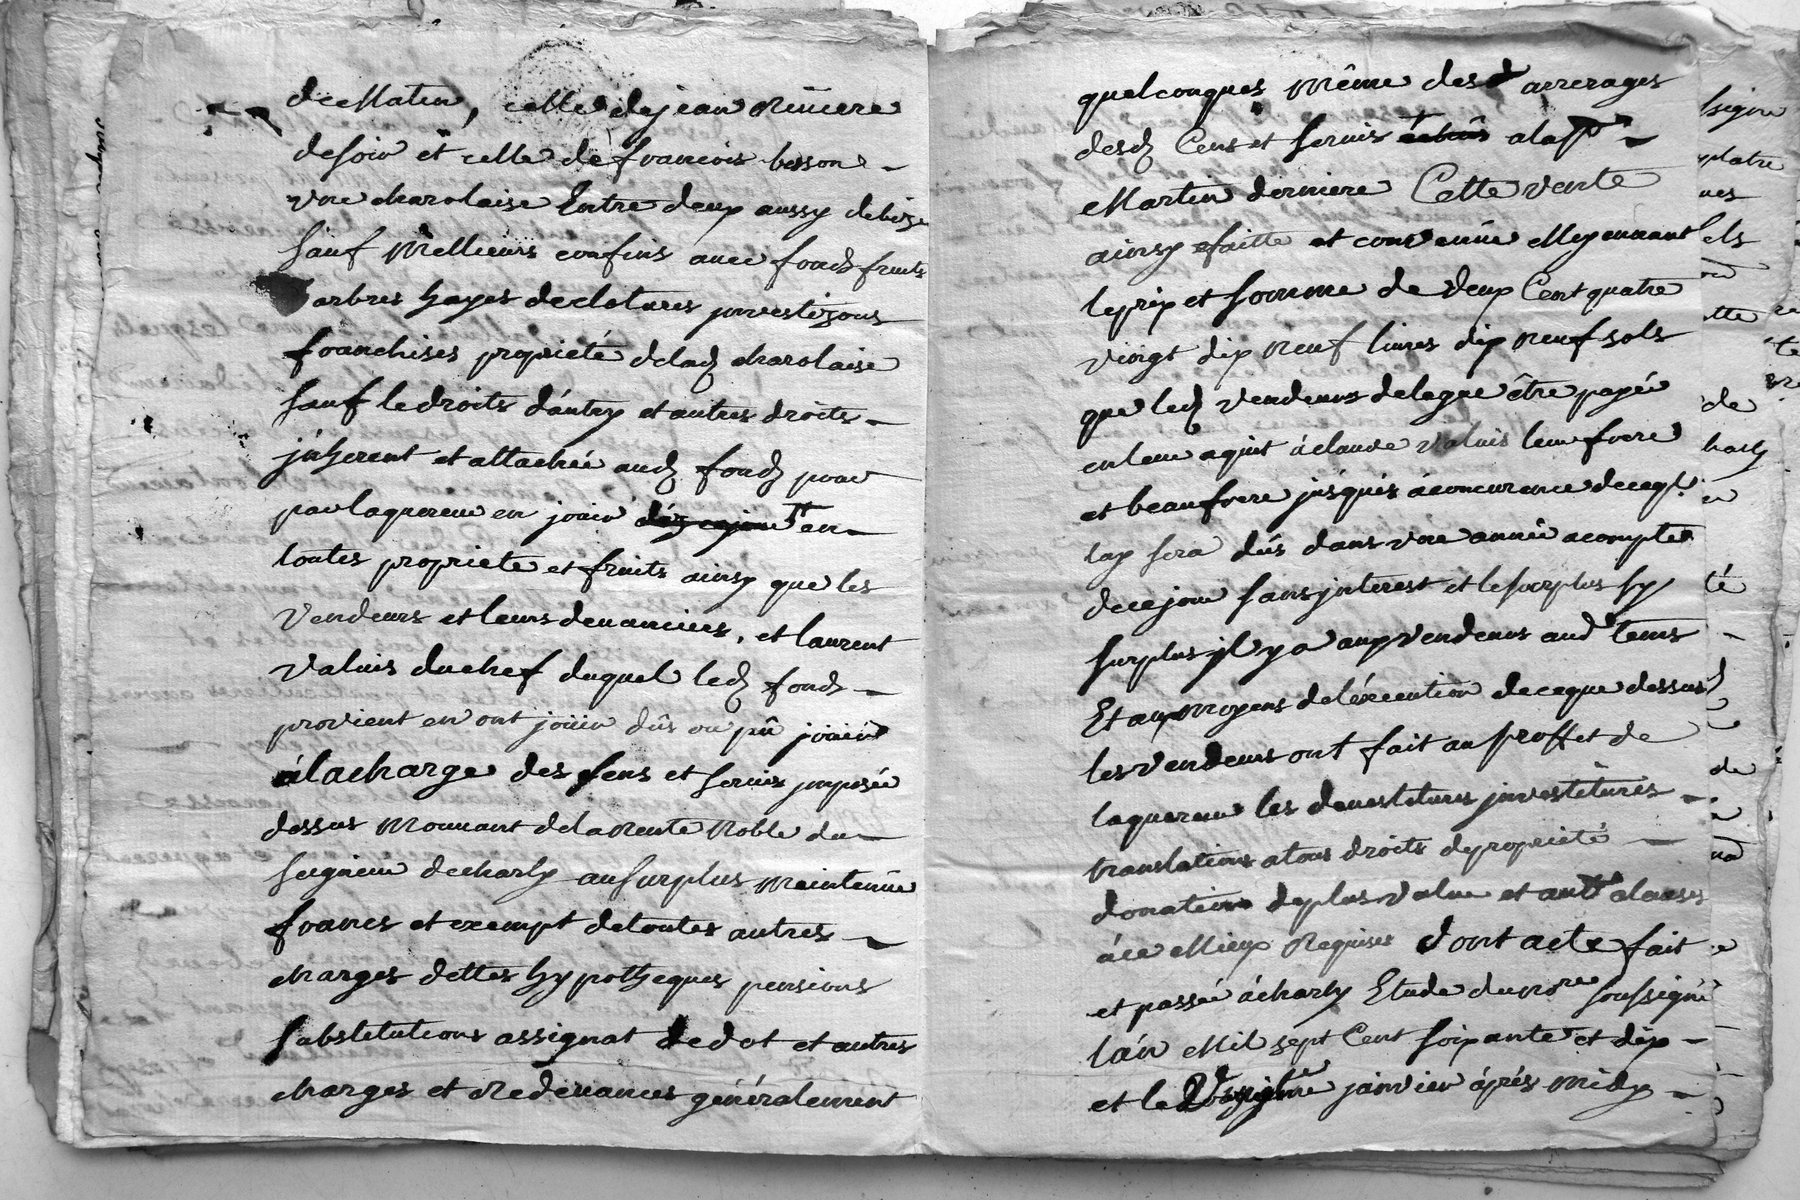 de Matin, celle de jean Riviere
de soir et celle de francois besson
vne charolaise Entre deux aussy de bize
sauf Mellieurs confins avec fonds fruits
arbres hayes de clotures investizons
franchises proprieté de lad charolaise
sauf le droits dántry et autres droits
jnherent et attachéé aud fond pour
par laquereur en jouir en
toutes propriete et fruits ainsy que les
Vendeurs et leurs devanciers, et laurent
Valuis du chef duquel led fond
provient en ont jouir dûs ou pû jouir
á la charge des sens et servis jmposée
dessus Mouvant de la Rente Noble du
seigneur de charly au surplus Maintenüe
francs et exempt de toutes autres
charges dettes hypotheques pensions
substitutions assignat de dot et autres
charges et Redevances généralement
quelconques Même des arrerages
desd Cens et servis a la st
Martin derniere Cette vente
ainsy faitte et convenüe Moyennant
le prix et somme de deux Cent quatre
vingt dix neuf livres dix neuf sols
que led vendeurs delague être payéé
en leur aquit á claude valuis leur frere
et beaufrere jusques á concurance de ce ql
luy sera dûs dans vne année a compter
de ce jour sans jnterest et le surplus sy
surplus jl y a aux vendeurs aud tems
Et aux moyens de léxecution de ce que dessus
les vendeurs ont fait au proffet de
laquereur les devestitures jnvestitures
translations a tous droits de proprieté
donation de plus value et autt clauses
á ce Mieux Requises dont acte fait
et passée á charly Etude du nore soussigné
lán Mil sept Cent soixante et dix
et le janvier áprés midy